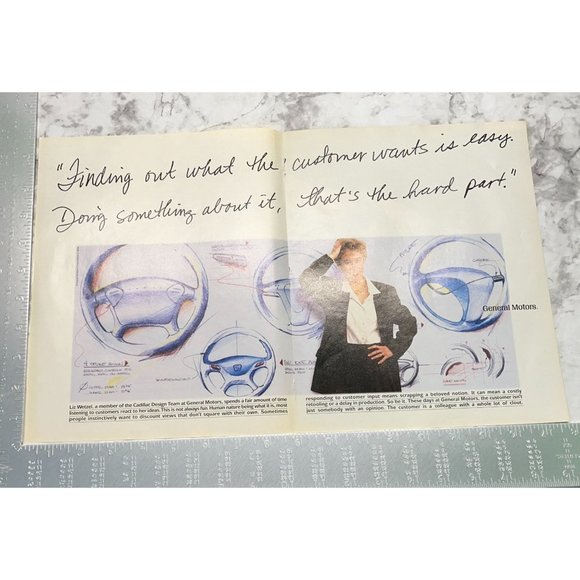 "Finding out what the customer wants is easy.
Doing something about it, that's the hard part."
General Motors.
Liz Wetzel, a member of the Cadillac Design Team at General Motors, spends a fair amount of time
listening to customers react to her ideas. This is not always fun. Human nature being what it is, most
people instinctively want to discount views that don't square with their own. Sometimes
responding to customer input means scrapping a beloved notion. It can mean a costly
retooling or a delay in production. So be it. These days at General Motors, the customer isn't
just somebody with an opinion. The customer is a colleague with a whole lot of clout.